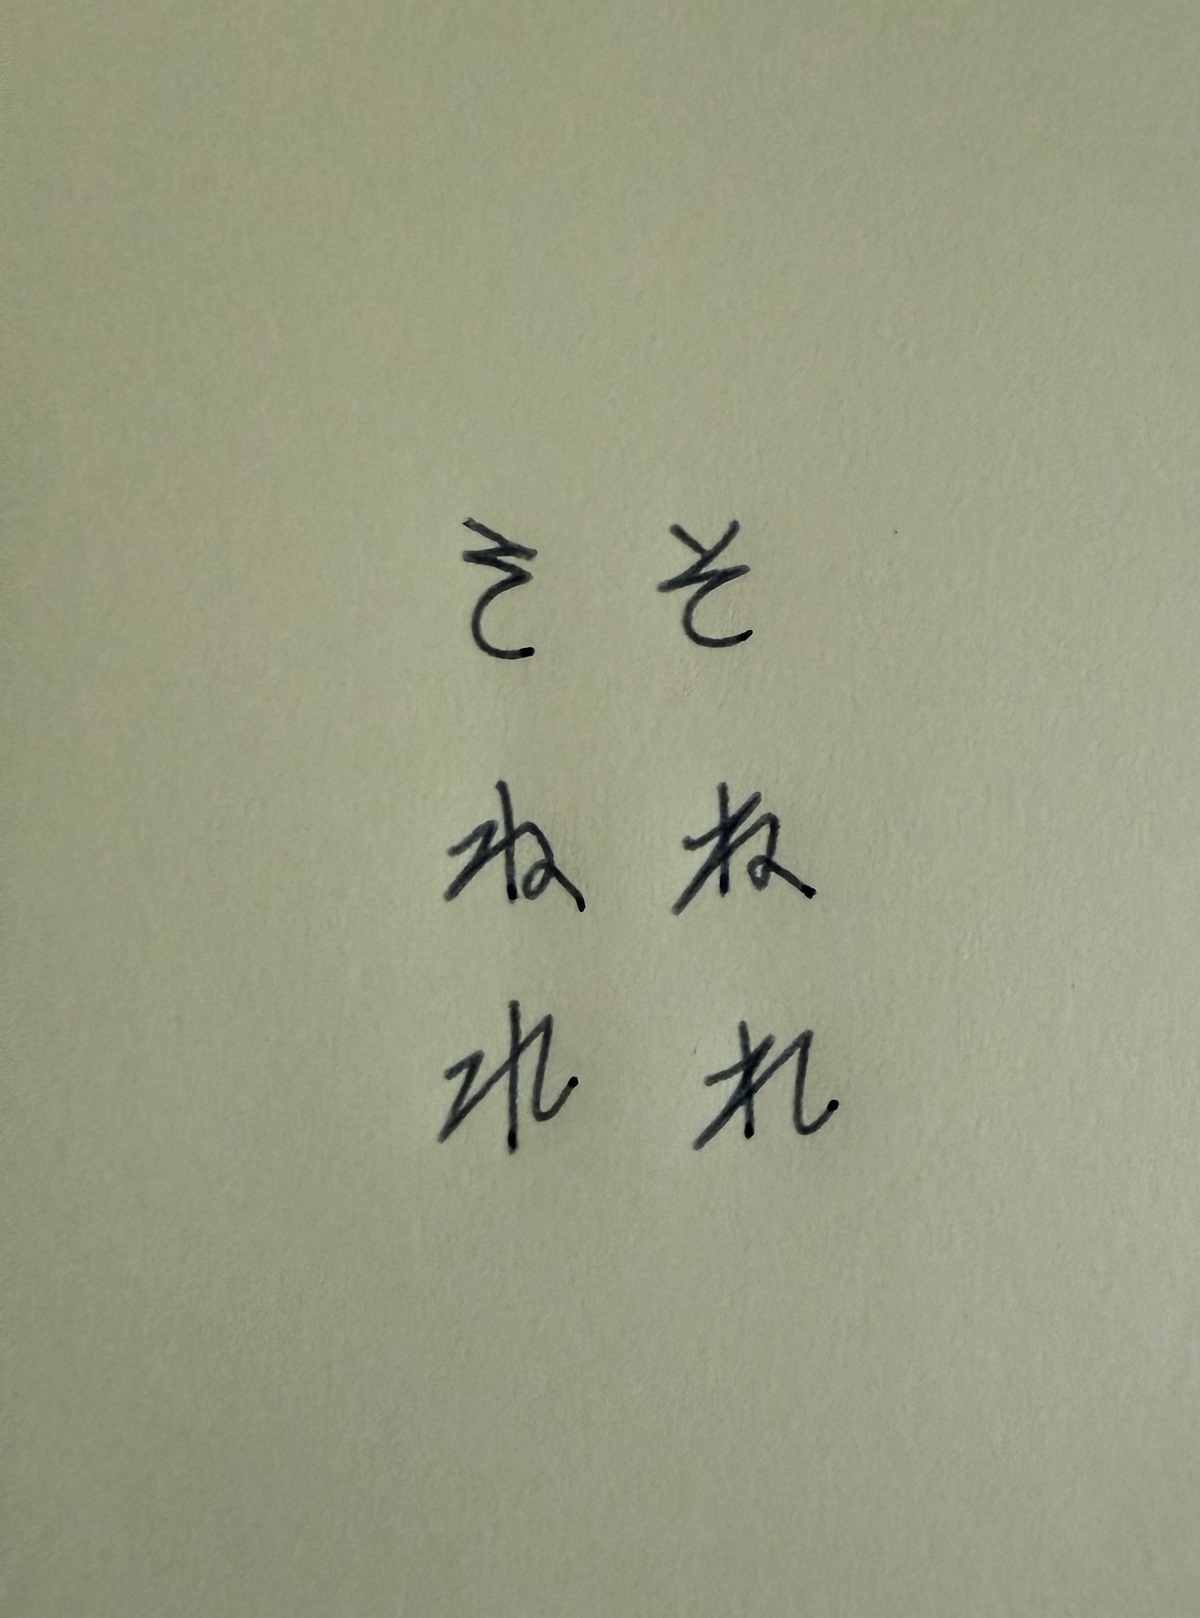 そ そ
ね ね
れ れ